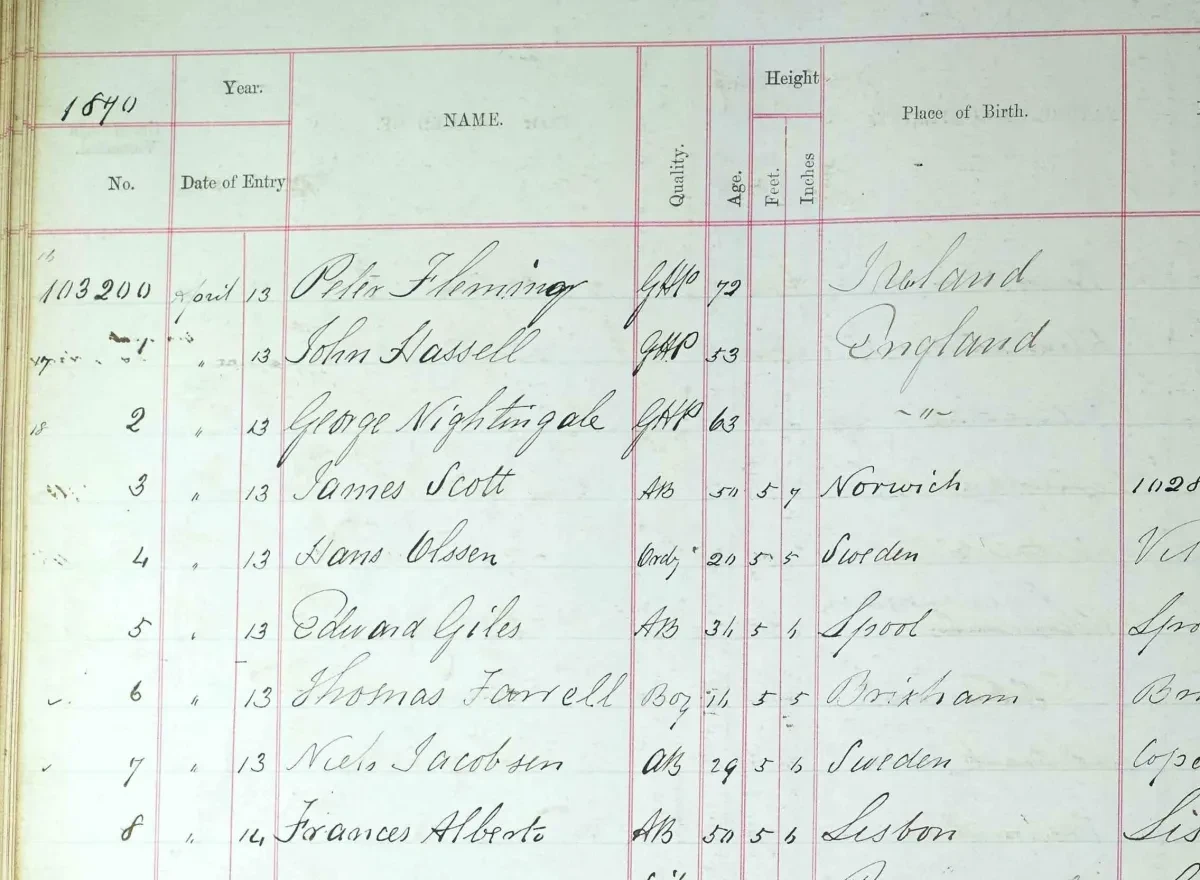 1870 Year. NAME. Quality. Age. Height Feet. Inches Place of Birth.
No. Date of Entry
16 103200 April 13 Peter Fleming GHP 72 Ireland
17 1 " 13 John Hassell GHP 53 England
18 2 " 13 George Nightingale GHP 63 "
3 " 13 James Scott AB 50 5 7 Norwich 1028
4 " 13 Hans Olssen Ordy 20 5 5 Sweden
5 " 13 Edward Giles AB 36 5 6 Lpool Lpo
6 " 13 Thomas Farrell Boy 16 5 5 Brixham Br
7 " 13 Niels Jacobsen AB 29 5 6 Sweden Cope
8 " 14 Frances Alberto AB 50 5 6 Lisbon Lis